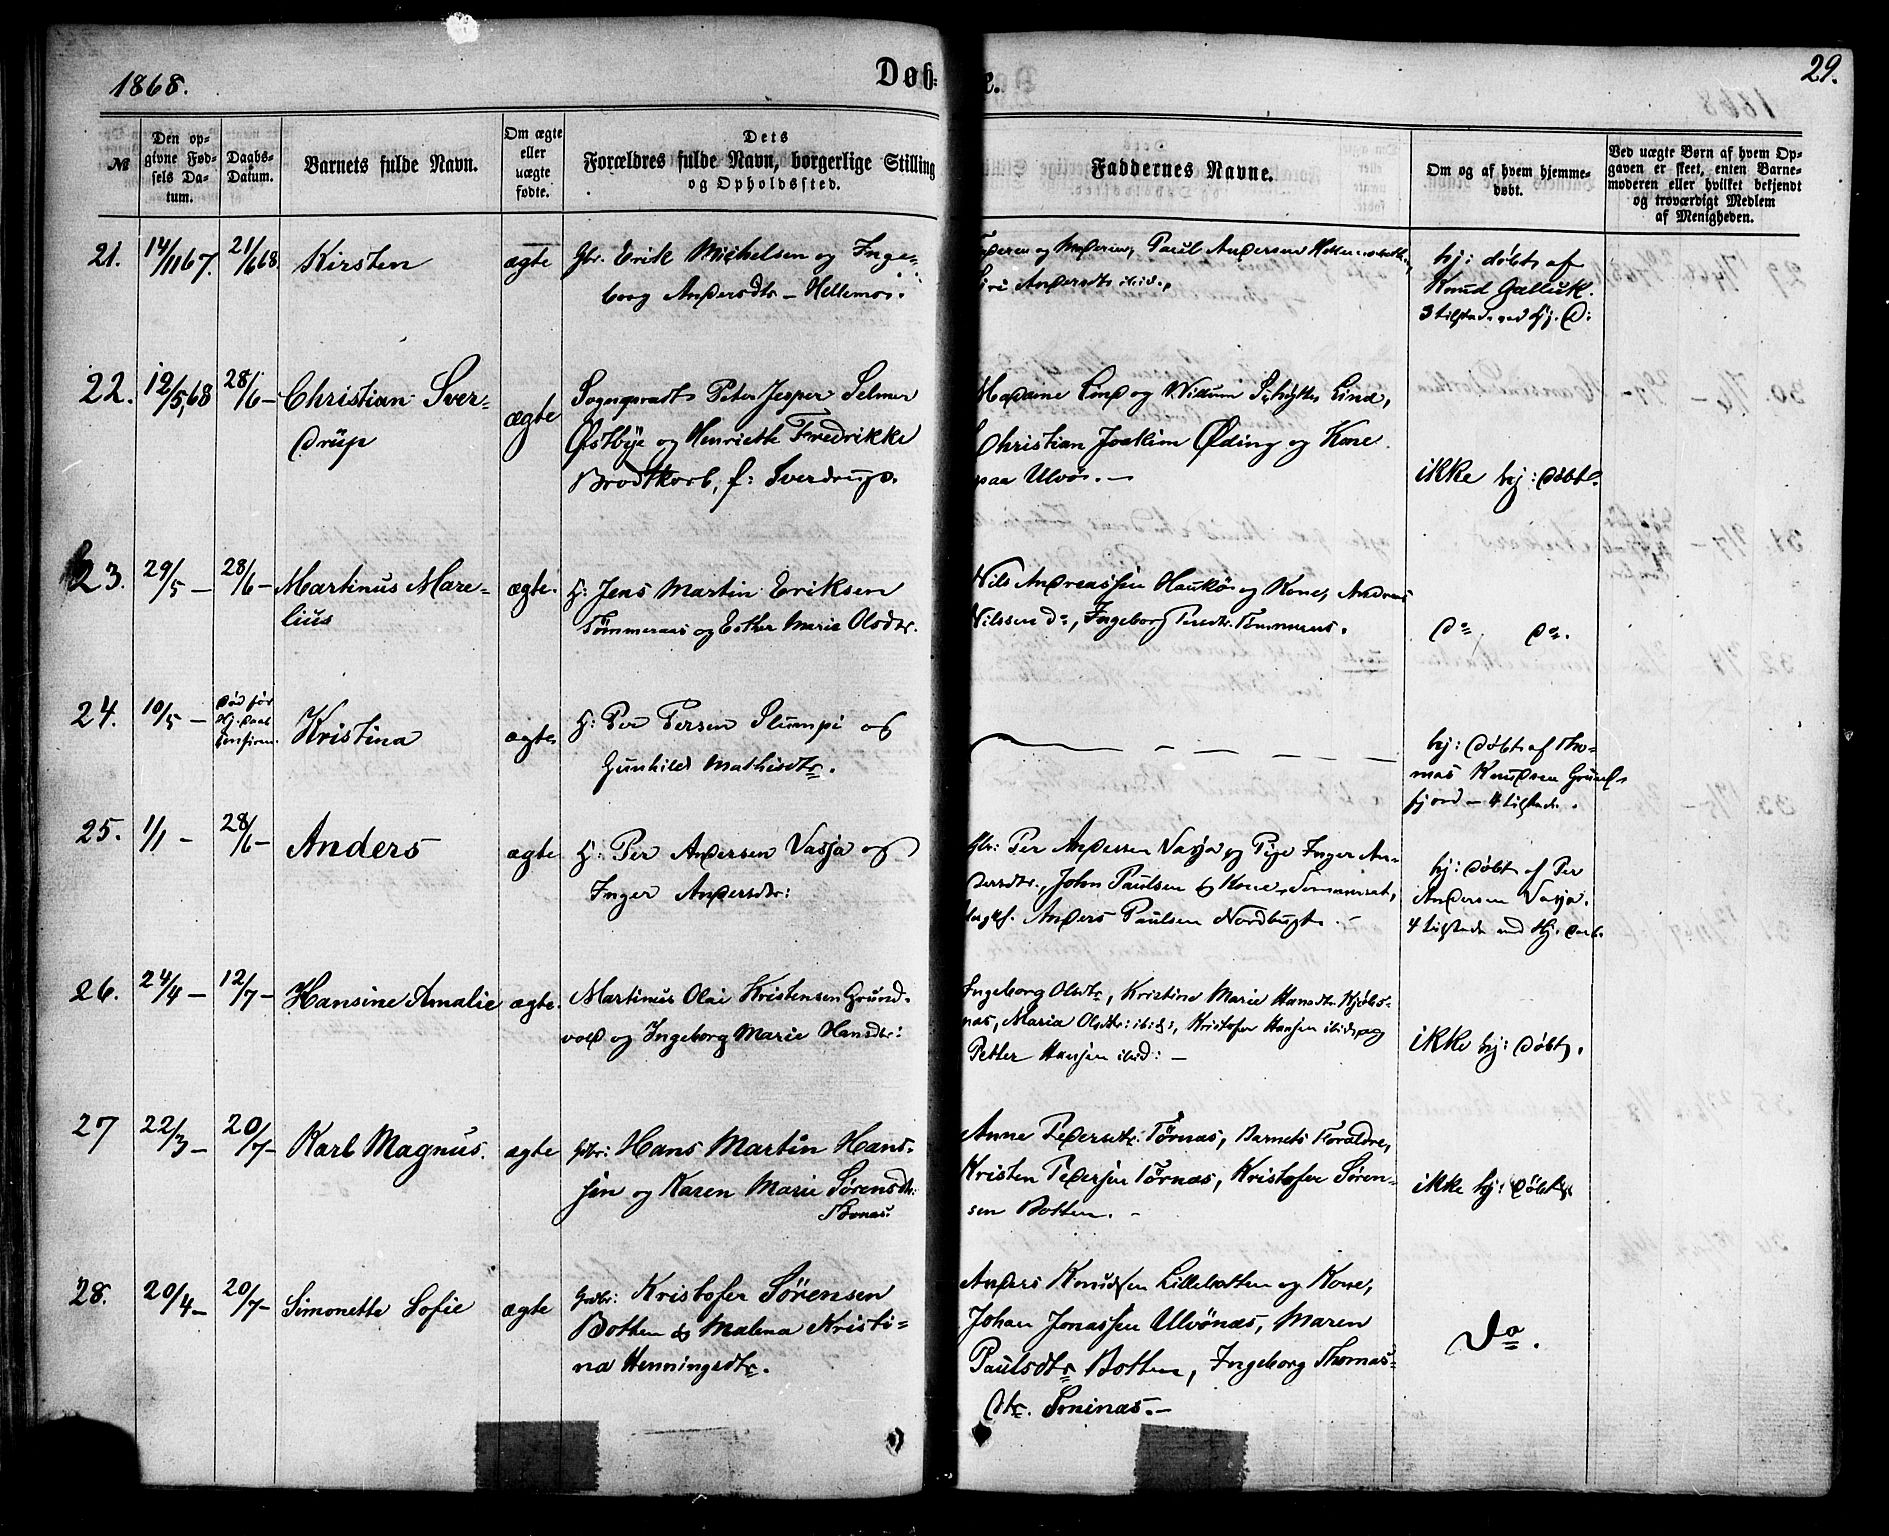 1868.
Døb-
e.
29.
№
Den op-
givne Fød-
sels Da-
tum.
Daabs-
Datum.
Barnets fulde Navn.
Om ægte
eller
uægte
fødte.
Dets
Forældres fulde Navn, borgerlige Stilling
og Opholdssted.
Faddernes Navne.
Om og af hvem hjemme-
døbt.
Ved uægte Børn af hvem Op-
gaven er skeet, enten Barne-
moderen eller hvilket bekjendt
og troværdigt Medlem
af Menigheden.
21. 14/11 67. 21/6 68 Kirsten ægte Gbr. Erik Michelsen og Inge-
borg Andersdtr - Hellemo.
og Moderen, Paul Andersen
Siri Andersdtr ibid.
hj: døbt af
Knud Galluk.
3 tilstede ved Hj. D:
22. 12/5 68 28/6 - Christian Sver-
drup
ægte
Sognepræst Peter Jesper Selmer
Østbye og Henriette Fredrikke
Brodtkorb, f: Sverdrup.
Madame Lind og Lind,
Christian Joakim Øding og Kone
paa Ulvø. -
ikke hj: døbt.
23. 29/5 - 28/6 - Martinus Mare-
lius
ægte.
H: Jens Martin Eriksen
Tømmeraas og Esther Maria Olsdtr.
Nils Andreassen Haukø og Kone, Andreas
Nilssen do, Ingeborg Pedtr. Tømmeraas.
do do.
24. 10/5 - død før
Kristina ægte H: Per Persen Slumpi og
Gunhild Mathisdtr.
hj: døbt af Tho-
mas Knudsen Grund-
fjord - 4 tilstede.
25. 1/1 - 28/6 - Anders ægte H: Per Andersen Vasja og
Inger Andersdtr:
Gbr: Per Andersen Vasja og Pige Inger An-
dersdtr., John Paulsen & Kone,
Ungkf. Anders Paulsen Nordbugt. -
hj: døbt af Per
Andersen Vasja.
4 tilstede ved Hj. daab.
26. 24/4 - 12/7 - Hansine Amalie ægte. Martinus Olai Kristensen Grund-
vold og Ingeborg Marie Hansdtr:
Ingeborg Olsdtr, Kristine Marie Hansdtr Kjøls-
nas, Maria Olsdtr: ibid:, Kristofer Hansen ibid, og
Petter Hansen ibid: -
ikke hj: døbt.
27 22/3 - 20/7 - Karl Magnus. ægte Gdbr: Hans Martin Hans-
sen og Karen Marie Sørensdtr:
Tørnas.
Anne Pedersdtr. Tørnas, Barnets Forældre,
Kristen Pedersen Tørnas, Kristofer Søren-
sen Botten. -
ikke hj: døbt
28. 20/4 - 20/7 - Simonette Sofie ægte Gdbr: Kristofer Sørensen
Botten & Malena Kristi-
na Henningsdtr.
Anders Knudsen Lillebotten og Kone,
Johan Jonassen Ulvønas, Maren
Paulsdtr Botten, Ingeborg Thomas-
dtr.
Do.